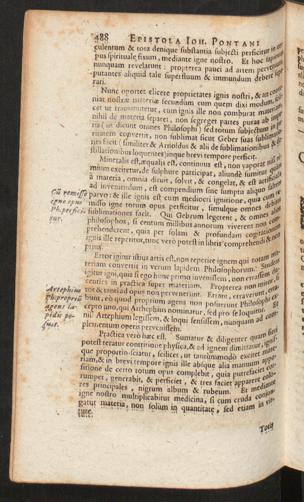 488 EPISTOLA IOH. PONTANI
culentum & tota denique substantia subjecti perficitur in
pus spirituale fixum, mediante igne nostro. Et hoc
nunquam revelarunt: propterea pauci ad artem
putantes aliquid tale superfluum & immundum debere
rari.
Nunc oportet elicere proprietates ignis nostri, & an
niat nostræ materiæ secundum eum quem dixi modum,
cet ut transmutetur, cum ignis ille non comburat materiam,
nihil de materia separet, non segreget partes puras ab
ris (ut dicunt omnes Philosophi) sed totum subjectum in
ritatem convertit, non sublimat sicut Geber suas
nes facit (similiter & Arnoldus & alii de sublimationibus &
stillationibus loquentes) inque brevi tempore perficit.
Mineralis est, æqualis est, continuus est, non vaporat nisi
mium excitetur, de sulphure participat, aliunde sumitur
à materia, omnia diruit, solvit, & congelat, & est
ad inveniendum, est compendium sine sumptu aliquo saltem
parvo: & ille ignis est cum mediocri ignitione, quia cum
misso igne totum opus perficitur, simulque omnes
sublimationes facit. Qui Gebrum legerent, & omnes
philosophos, si centum millibus annorum viverent non
prehenderent, quia per solam & profundam cogitationem
ignis ille reperitur, tunc verò potest in libris comprehendi & non
Cũ remisso
igne opus
Ph. perficitur.
Error igitur istius artis est, non reperire ignem qui totam
teriam convertit in verum lapidem Philosophorum:
igitur igni, quia si ego hunc primo invenissem, non errassem
centies in practica super materiam. Propterea non miror, si
tot & tanti ad opus non pervenerunt. Errant, erraverunt,
bunt, eò quod proprium agens non posuerunt Philosophi
cepto uno, qui Arthephius nominatur, sed pro se loquitur.
nisi Artephium legissem, & loqui sensissem, nunquam ad
plementum operis pervenissem.
Artephius
Ph. proprium
agens lapidis
posuit.
Practica verò hæc est. Sumatur & diligenter quam fieri
potest teratur contritione physica, & ad ignem dimittatur,
que proportio sciatur, scilicet, ut tantummodo excitet
riam, & in brevi tempore ignis ille absque alia manuum
sitione de certo totum opus complebit, quia putrefaciet,
rumpet, generabit, & perficiet, & tres faciet apparere
res principales, nigrum album & rubeum. Et mediante
igne nostro multiplicabitur medicina, si cum cruda
gatur materia, non solum in quantitate, sed etiam in
tute.